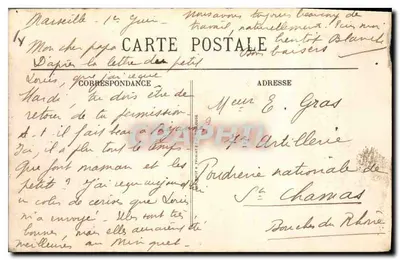 Marseille - 1er Juin -
Mon cher papa
D'après la lettre des petits
Louis, que j'ai reçue
Mardi, tu dois être de
retour de ta permission
A-t-il fait beau à
Ici, il a plu tout le temps.
Que font maman et les
petits? J'ai reçu aujourd'hui
un colis de cerises que Louis
m'a envoyé. Elles sont très
bonnes, mais elles auraient été
meilleures au
Nous avons toujours beaucoup de
travail, naturellement.
bientôt Blanche
Bons baisers
CARTE POSTALE
CORRESPONDANCE
ADRESSE
Mr E. Gras
Artillerie
Poudrerie nationale de
St Chamas
Bouches du Rhône